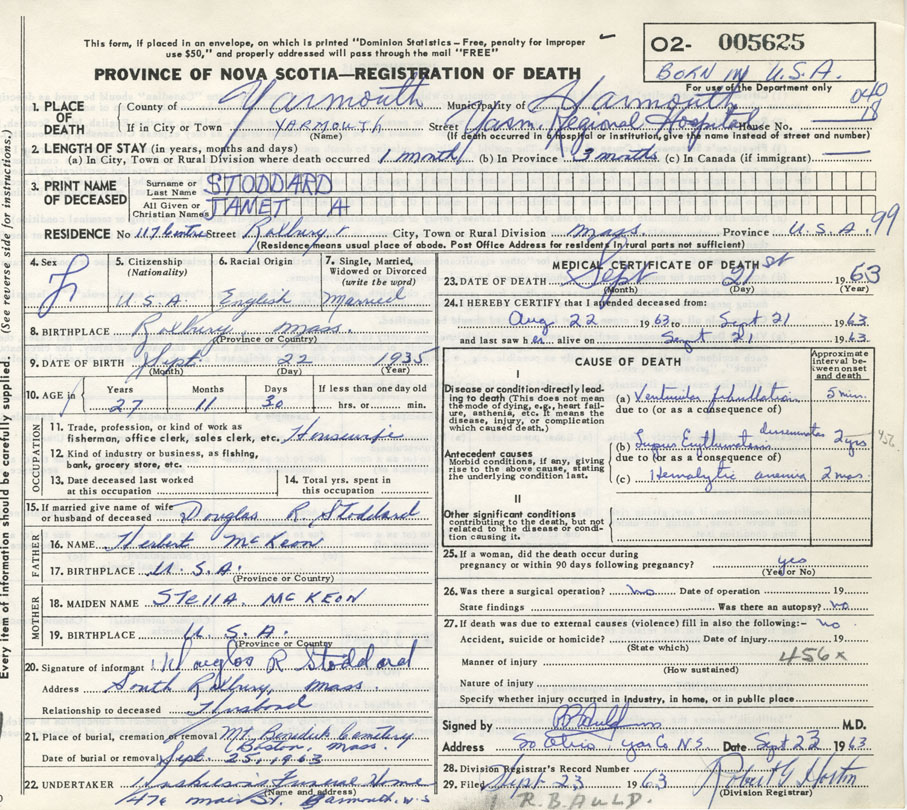 This form, if placed in an envelope, on which is printed "Dominion Statistics – Free, penalty for improper
use $50," and properly addressed will pass through the mail "FREE"
02- 005625
PROVINCE OF NOVA SCOTIA—REGISTRATION OF DEATH
BORN IN U.S.A.
For use of the Department only
040
18
1. PLACE OF DEATH { County of Yarmouth Municipality of Yarmouth
If in City or Town YARMOUTH (Name) Street Yarm. Regional Hospital House No.
(If death occurred in hospital or institution, give the name instead of street and number)
2. LENGTH OF STAY (in years, months and days)
(a) In City, Town or Rural Division where death occurred 1 month (b) In Province 3 months (c) In Canada (if immigrant)
3. PRINT NAME OF DECEASED { Surname or Last Name STODDARD
All Given or Christian Names JANET A
RESIDENCE No 117 Street Roxbury City, Town or Rural Division Mass. Province U.S.A. 99
(Residence means usual place of abode. Post Office Address for residents in rural parts not sufficient)
4. Sex F
5. Citizenship (Nationality) U.S.A.
6. Racial Origin English
7. Single, Married, Widowed or Divorced (write the word) Married
8. BIRTHPLACE Roxbury, Mass. (Province or Country)
9. DATE OF BIRTH Sept. (Month) 22 (Day) 1935 (Year)
10. AGE in { Years 27 Months 11 Days 30 If less than one day old hrs. or min.
OCCUPATION
11. Trade, profession, or kind of work as fisherman, office clerk, sales clerk, etc. Housewife
12. Kind of industry or business, as fishing, bank, grocery store, etc.
13. Date deceased last worked at this occupation
14. Total yrs. spent in this occupation
15. If married give name of wife or husband of deceased Douglas R. Stoddard
FATHER
16. NAME Herbert McKeon
17. BIRTHPLACE U.S.A. (Province or Country)
MOTHER
18. MAIDEN NAME STELLA MCKEON
19. BIRTHPLACE U.S.A. (Province or Country)
20. Signature of informant Douglas R Stoddard
Address South Roxbury, Mass.
Relationship to deceased Husband
21. Place of burial, cremation or removal Mt. Benedict Cemetery
(Boston, Mass.
Date of burial or removal Sept. 25, 1963
22. UNDERTAKER Funeral Home
(Name and address)
Main St. Yarmouth, N.S
MEDICAL CERTIFICATE OF DEATH
23. DATE OF DEATH Sept (Month) 21st (Day) 1963 (Year)
24. I HEREBY CERTIFY that I attended deceased from:
Aug 22 1963 to Sept 21 1963
and last saw her alive on Sept 21 1963
CAUSE OF DEATH
Approximate interval between onset and death
I
Disease or condition directly leading to death (This does not mean the mode of dying, e.g., heart failure, asthenia, etc. It means the disease, injury, or complication which caused death.)
(a) Ventricular fibrillation 5 min.
due to (or as a consequence of)
Antecedent causes
Morbid conditions, if any, giving rise to the above cause, stating the underlying condition last.
(b) Lupus Erythematosis disseminatus 2 yrs 456
due to (or as a consequence of)
(c) Hemolytic anemia 2 mos.
II
Other significant conditions
contributing to the death, but not related to the disease or condition causing it.
25. If a woman, did the death occur during pregnancy or within 90 days following pregnancy? yes
(Yes or No)
26. Was there a surgical operation? no Date of operation 19
State findings Was there an autopsy? no
27. If death was due to external causes (violence) fill in also the following:- no
Accident, suicide or homicide? (State which) Date of injury 19
Manner of injury (How sustained) 456x
Nature of injury
Specify whether injury occurred in industry, in home, or in public place
Signed by M.D.
Address So Ohio Yar Co NS Date Sept 23 1963
28. Division Registrar's Record Number
29. Filed Sept 23 1963 Robert G Horton
(Division Registrar)
R.B. AULD.
Every item of information should be carefully supplied. (See reverse side for instructions.)